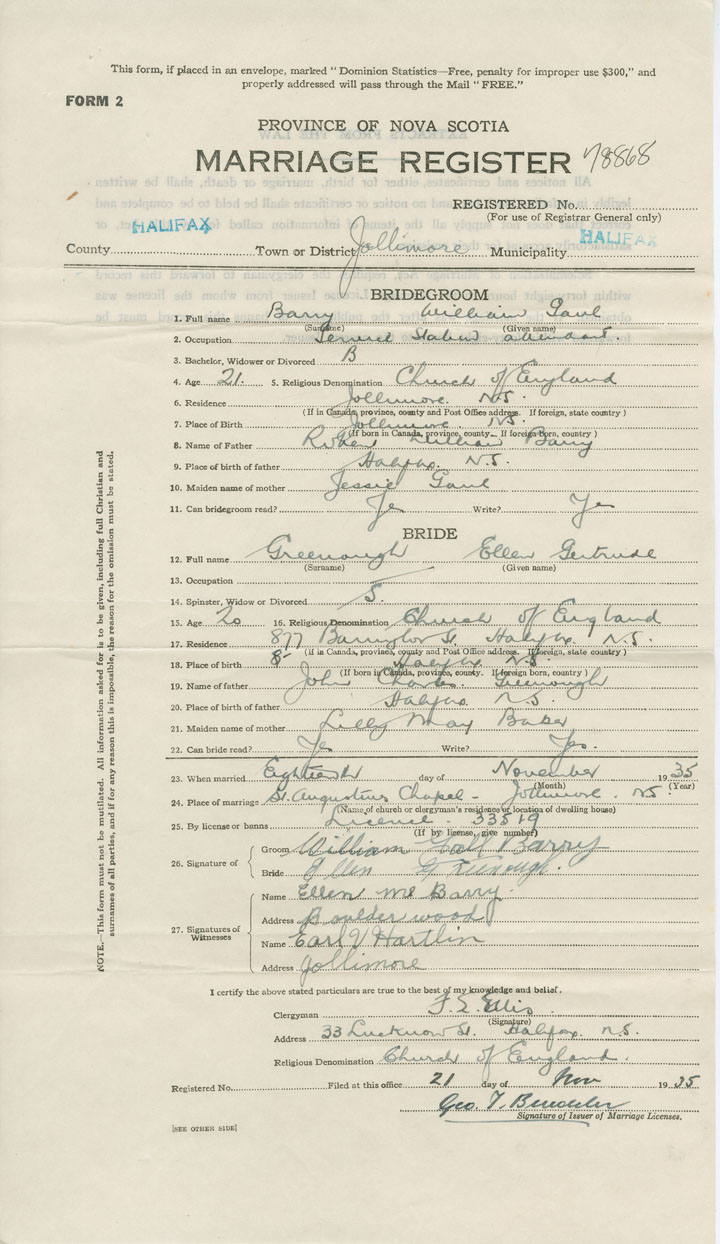 This form, if placed in an envelope, marked "Dominion Statistics—Free, penalty for improper use $300," and
properly addressed will pass through the Mail "FREE."
FORM 2
PROVINCE OF NOVA SCOTIA
MARRIAGE REGISTER 78868
REGISTERED No.
(For use of Registrar General only)
County HALIFAX Town or District Jollimore Municipality HALIFAX
BRIDEGROOM
1. Full name Barry William Gaul
(Surname) (Given name)
2. Occupation Service Station attendant.
3. Bachelor, Widower or Divorced B
4. Age 21. 5. Religious Denomination Church of England
6. Residence Jollimore N.S.
(If in Canada, province, county and Post Office address. If foreign, state country)
7. Place of Birth Jollimore N.S.
(If born in Canada, province, county. If foreign born, country)
8. Name of Father William Barry
9. Place of birth of father Halifax. N.S.
10. Maiden name of mother Jessie Gaul
11. Can bridegroom read? Yes Write? Yes
BRIDE
12. Full name Greenough Ellen Gertrude
(Surname) (Given name)
13. Occupation
14. Spinster, Widow or Divorced S.
15. Age 20 16. Religious Denomination Church of England
17. Residence 877 Barrington St. Halifax. N.S.
(if in Canada, province, county and Post Office address. If foreign, state country)
18. Place of birth Halifax N.S.
(If born in Canada, province, county. If foreign born, country)
19. Name of father John Charles Greenough
20. Place of birth of father Halifax N.S.
21. Maiden name of mother Lilly May Baker
22. Can bride read? Yes Write? Yes.
23. When married Eighteenth day of November 1935
(Month) (Year)
24. Place of marriage St. Augustine's Chapel - Jollimore. N.S.
(Name of church or clergyman's residence or location of dwelling house)
25. By license or banns Licence - 33519
(If by license, give number)
26. Signature of
Groom William Gaul Barry
Bride Ellen G Greenough.
27. Signatures of Witnesses
Name Ellen Mc Barry.
Address Boulderwood
Name Earl V Hartlin
Address Jollimore
I certify the above stated particulars are true to the best of my knowledge and belief.
Clergyman F. E. Ellis
(Signature)
Address 33 Lucknow St. Halifax. N.S.
Religious Denomination Church of England.
Registered No. Filed at this office 21 day of Nov 1935
Geo. T.
Signature of Issuer of Marriage Licenses.
[SEE OTHER SIDE]
NOTE.—This form must not be mutilated. All information asked for is to be given, including full Christian and
surnames of all parties, and if for any reason this is impossible, the reason for the omission must be stated.